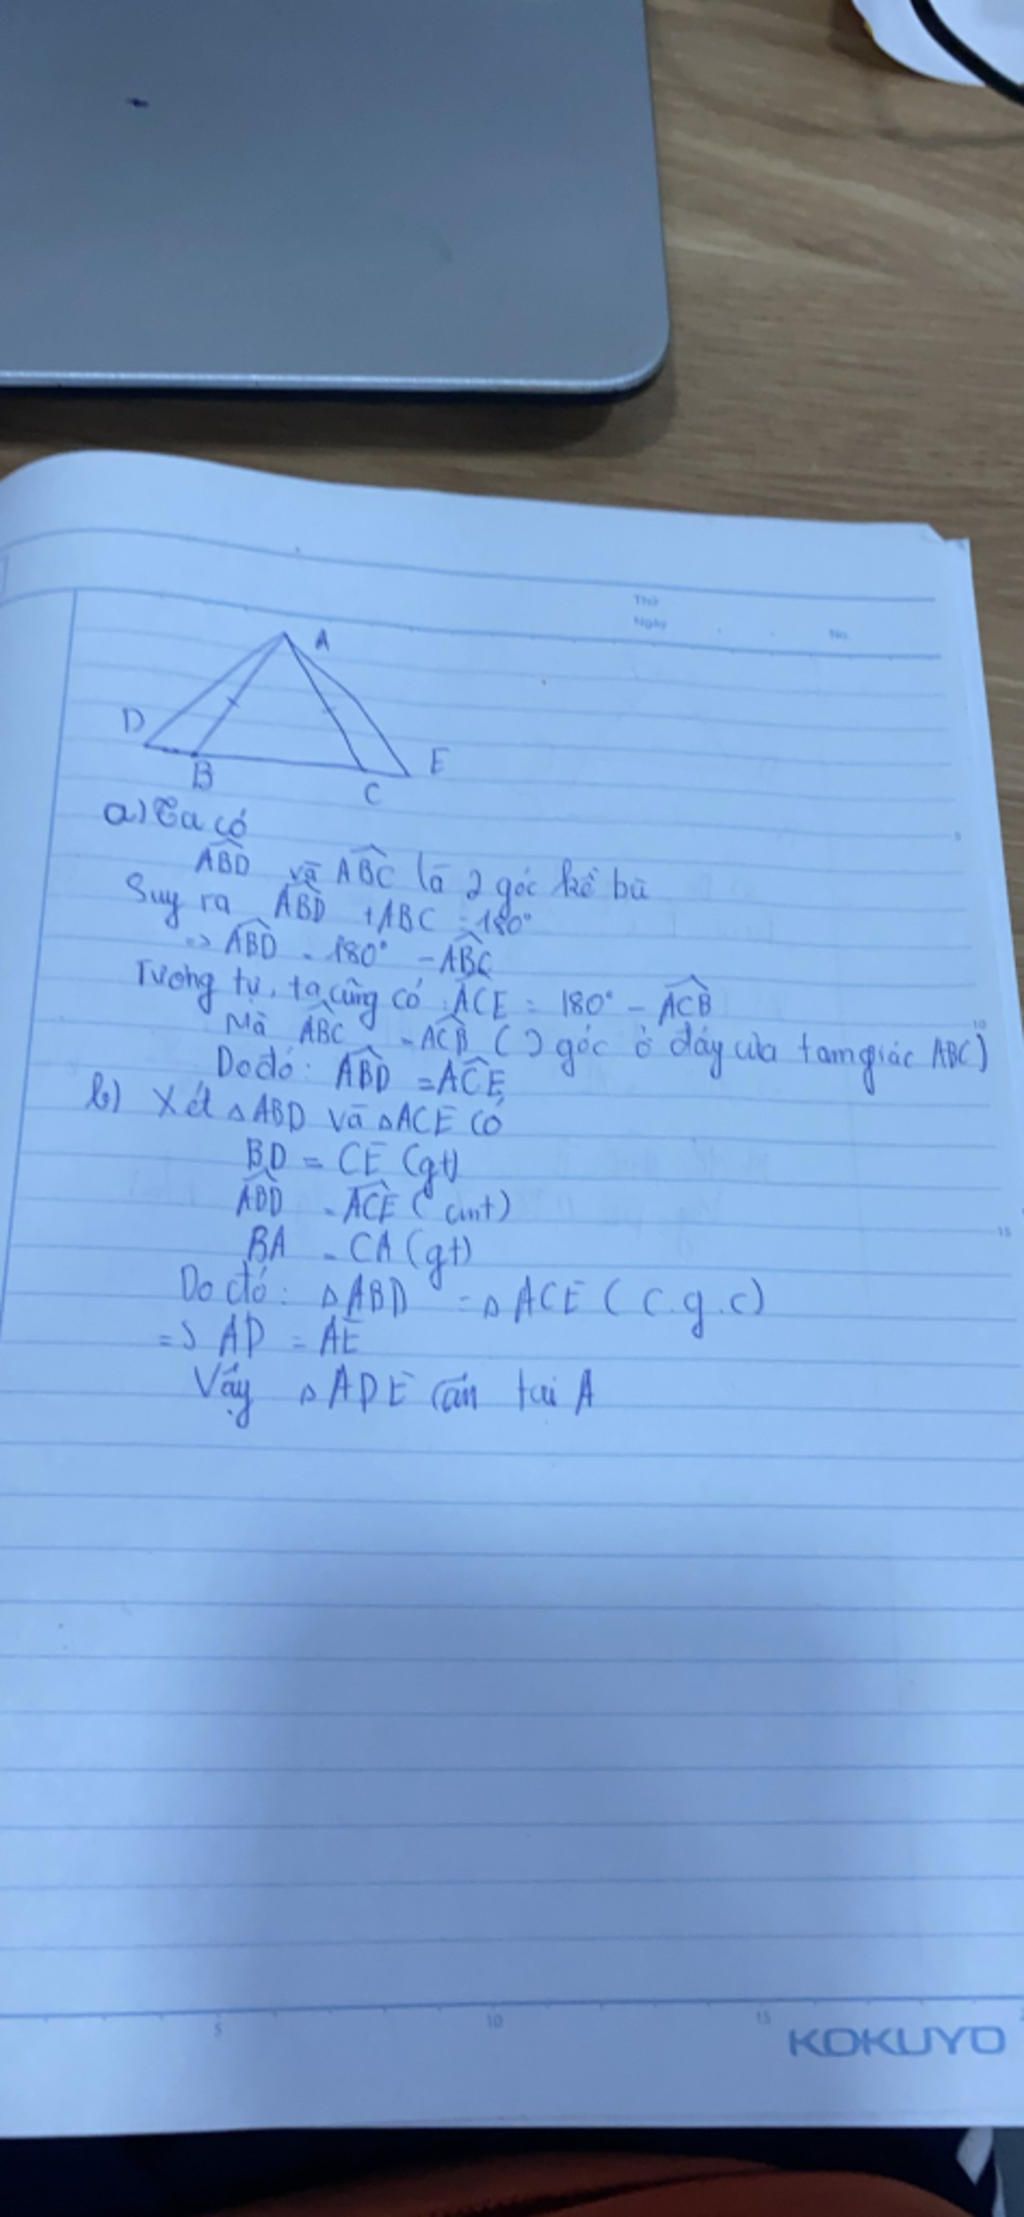 Thứ
Ngày
No.
A
D
B
C
E
a) Ta có
ABD và ABC là 2 góc kề bù
Suy ra ABD + ABC = 180°
=> ABD = 180° - ABC
Tương tự, ta cũng có : ACE = 180° - ACB
Mà ABC = ACB ( 2 góc ở đáy của tam giác ABC)
Do đó : ABD = ACE
b) Xét △ABD và △ACE có
BD = CE (gt)
ABD = ACE ( cmt)
BA = CA (gt)
Do đó : △ABD = △ACE ( c.g.c)
=> AD = AE
Vậy △ADE cân tại A
5
10
15
5
10
15
KOKUYO